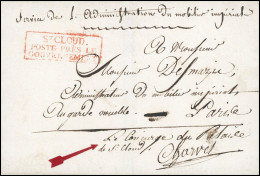 Service de l'Administration du mobilier impérial
St CLOUD,
POSTE PRÈS LE
A Monsieur
Monsieur Desmazis,
Administrateur du mobilier impérial
Au garde meuble
à Paris
Le Concierge du Palais
de St Cloud
Charvet